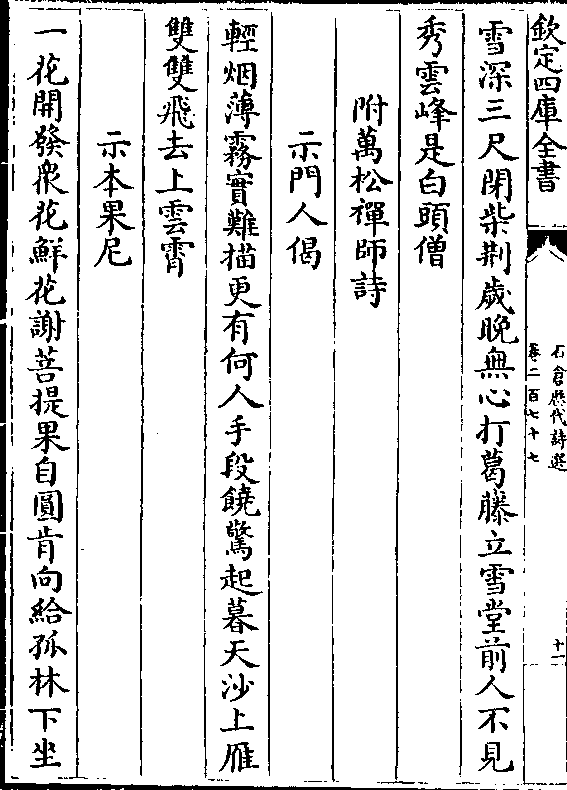 欽定四庫全書
石倉歷代詩選
卷二百七十七
十一
雪深三尺閉柴荆歲晩無心打葛藤立雪堂前人不見
秀雲峰是白頭僧
附萬松禪師詩
示門人偈
輕烟薄霧實難描更有何人手段饒驚起暮天沙上雁
雙雙飛去上雲霄
示本果尼
一花開發衆花鮮花謝菩提果自圓肯向給孤林下坐